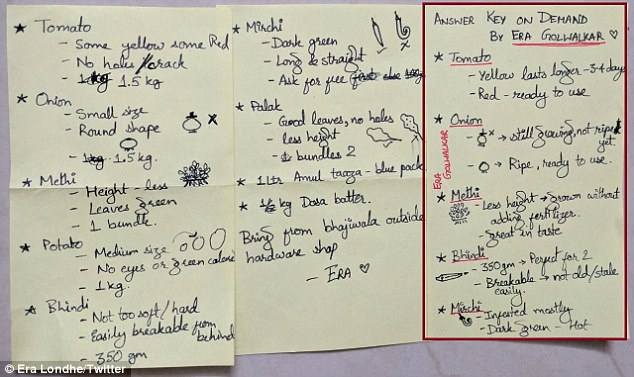 ★ Tomato
- Some yellow some Red
- No holes/crack
- 1.5 kg
★ Onion
- Small size
- Round shape
- 1.5 kg.
★ Methi
- Height - less
- Leaves green
- 1 bundle.
★ Potato
- Medium size
- No eyes or green
- 1 kg.
★ Bhindi
- Not too soft/hard
- Easily breakable from behind
- 350 gm
★ Mirchi
- Dark green
- Long & straight
- Ask for free
★ Palak
- Good leaves, no holes
- less height
- bundles 2
★ 1 ltr Amul taaza - blue pack
★ kg Dosa batter.
Bring from bhajiwala outside
hardware shop
- ERA ♡
ANSWER KEY ON DEMAND
BY ERA GOLWALKAR ♡
★ Tomato
- Yellow lasts longer - 3-4 days
- Red - ready to use
★ Onion
- x → still growing, not ripe
yet.
- → Ripe, ready to use.
ERA
GOLWALKAR
★ Methi
- Less height → grown without
adding fertilizer.
- great in taste
★ Bhindi
- 350gm → Perfect for 2
- Breakable → not old/stale
easily.
★ Mirchi
- Infested mostly
- Dark green - Hot
© Era Londhe/Twitter